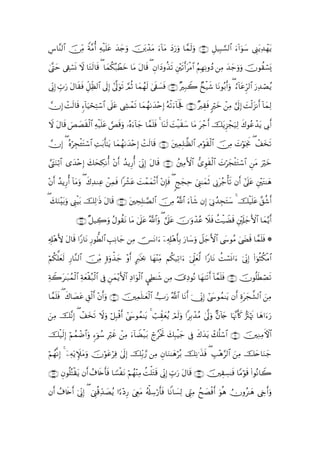 يَهْدِيَنِى سَوَآءَ ٱلسَّبِيلِ ﴿٢٢﴾ وَلَمَّا وَرَدَ مَآءَ مَدْيَنَ وَجَدَ عَلَيْهِ أُمَّةً مِّنَ ٱلنَّاسِ
يَسْقُونَ وَوَجَدَ مِن دُونِهِمُ ٱمْرَأَتَيْنِ تَذُودَانِ ۖ قَالَ مَا خَطْبُكُمَا ۖ قَالَتَا لَا نَسْقِى حَتَّىٰ
يُصْدِرَ ٱلرِّعَآءُ ۖ وَأَبُونَا شَيْخٌ كَبِيرٌ ﴿٢٣﴾ فَسَقَىٰ لَهُمَا ثُمَّ تَوَلَّىٰٓ إِلَى ٱلظِّلِّ فَقَالَ رَبِّ إِنِّى
لِمَآ أَنزَلْتَ إِلَىَّ مِنْ خَيْرٍ فَقِيرٌ ﴿٢٤﴾ فَجَآءَتْهُ إِحْدَىٰهُمَا تَمْشِى عَلَى ٱسْتِحْيَآءٍ قَالَتْ إِنَّ
أَبِى يَدْعُوكَ لِيَجْزِيَكَ أَجْرَ مَا سَقَيْتَ لَنَا ۚ فَلَمَّا جَآءَهُۥ وَقَصَّ عَلَيْهِ ٱلْقَصَصَ قَالَ لَا
تَخَفْ ۖ نَجَوْتَ مِنَ ٱلْقَوْمِ ٱلظَّٰلِمِينَ ﴿٢٥﴾ قَالَتْ إِحْدَىٰهُمَا يَٰٓأَبَتِ ٱسْتَـْٔجِرْهُ ۖ إِنَّ
خَيْرَ مَنِ ٱسْتَـْٔجَرْتَ ٱلْقَوِىُّ ٱلْأَمِينُ ﴿٢٦﴾ قَالَ إِنِّىٓ أُرِيدُ أَنْ أُنكِحَكَ إِحْدَى ٱبْنَتَىَّ
هَٰتَيْنِ عَلَىٰٓ أَن تَأْجُرَنِى ثَمَٰنِىَ حِجَجٍ ۖ فَإِنْ أَتْمَمْتَ عَشْرًا فَمِنْ عِندِكَ ۖ وَمَآ أُرِيدُ أَنْ
أَشُقَّ عَلَيْكَ ۚ سَتَجِدُنِىٓ إِن شَآءَ ٱللَّهُ مِنَ ٱلصَّٰلِحِينَ ﴿٢٧﴾ قَالَ ذَٰلِكَ بَيْنِى وَبَيْنَكَ ۖ
أَيَّمَا ٱلْأَجَلَيْنِ قَضَيْتُ فَلَا عُدْوَٰنَ عَلَىَّ ۖ وَٱللَّهُ عَلَىٰ مَا نَقُولُ وَكِيلٌ ﴿٢٨﴾
۞ فَلَمَّا قَضَىٰ مُوسَى ٱلْأَجَلَ وَسَارَ بِأَهْلِهِۦٓ ءَانَسَ مِن جَانِبِ ٱلطُّورِ نَارًا قَالَ لِأَهْلِهِ
ٱمْكُثُوٓا۟ إِنِّىٓ ءَانَسْتُ نَارًا لَّعَلِّىٓ ءَاتِيكُم مِّنْهَا بِخَبَرٍ أَوْ جَذْوَةٍ مِّنَ ٱلنَّارِ لَعَلَّكُمْ
تَصْطَلُونَ ﴿٢٩﴾ فَلَمَّآ أَتَىٰهَا نُودِىَ مِن شَٰطِئِ ٱلْوَادِ ٱلْأَيْمَنِ فِى ٱلْبُقْعَةِ ٱلْمُبَٰرَكَةِ
مِنَ ٱلشَّجَرَةِ أَن يَٰمُوسَىٰٓ إِنِّىٓ أَنَا ٱللَّهُ رَبُّ ٱلْعَٰلَمِينَ ﴿٣٠﴾ وَأَنْ أَلْقِ عَصَاكَ ۖ فَلَمَّا
رَءَاهَا تَهْتَزُّ كَأَنَّهَا جَآنٌّ وَلَّىٰ مُدْبِرًا وَلَمْ يُعَقِّبْ ۚ يَٰمُوسَىٰٓ أَقْبِلْ وَلَا تَخَفْ ۖ إِنَّكَ مِنَ
ٱلْءَامِنِينَ ﴿٣١﴾ ٱسْلُكْ يَدَكَ فِى جَيْبِكَ تَخْرُجْ بَيْضَآءَ مِنْ غَيْرِ سُوٓءٍ وَٱضْمُمْ إِلَيْكَ
جَنَاحَكَ مِنَ ٱلرَّهْبِ ۖ فَذَٰنِكَ بُرْهَٰنَانِ مِن رَّبِّكَ إِلَىٰ فِرْعَوْنَ وَمَلَإِي۟هِۦٓ ۚ إِنَّهُمْ
كَانُوا۟ قَوْمًا فَٰسِقِينَ ﴿٣٢﴾ قَالَ رَبِّ إِنِّى قَتَلْتُ مِنْهُمْ نَفْسًا فَأَخَافُ أَن يَقْتُلُونِ ﴿٣٣﴾
وَأَخِى هَٰرُونُ هُوَ أَفْصَحُ مِنِّى لِسَانًا فَأَرْسِلْهُ مَعِىَ رِدْءًا يُصَدِّقُنِىٓ ۖ إِنِّىٓ أَخَافُ أَن